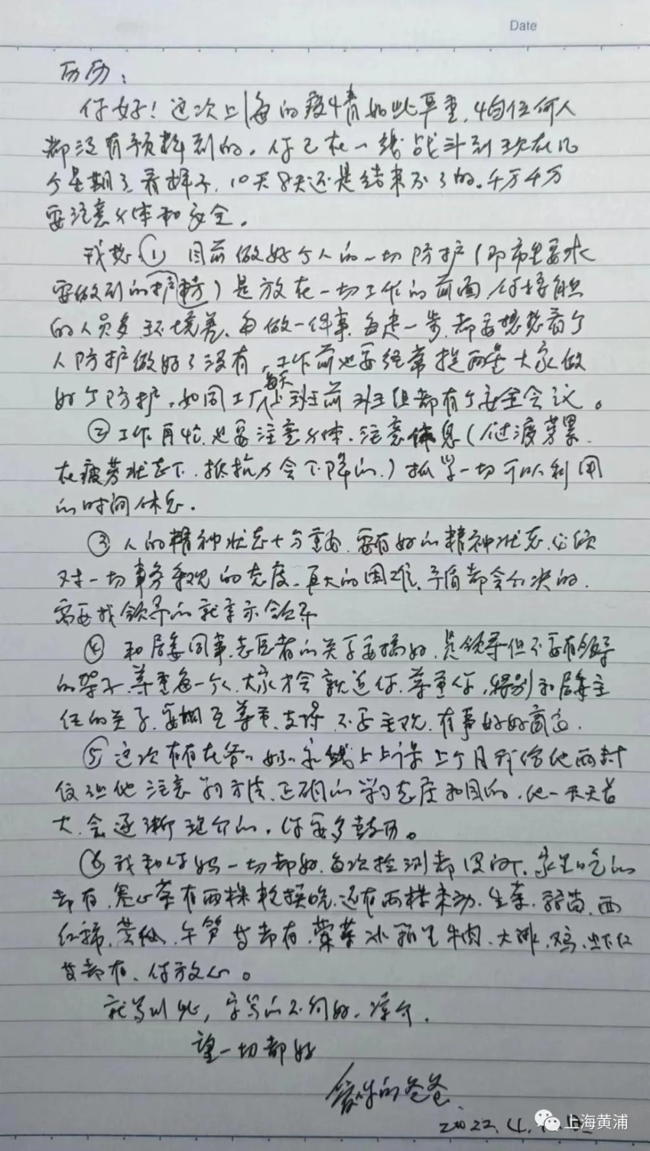 Date
历历：
你好！这次上海的疫情如此严重，是任何人
都没有预料到的。你已在一线战斗到现在几
个星期了，看样子，10天8天还是结束不了的。千万千万
要注意身体和安全。
我想①目前做好个人的一切防护（即市里要求
要做到的）是放在一切工作的前面，你接触
的人员多环境差，每做一件事，每走一步，都要想想看个
人防护做好了没有，工作前也要经常提醒大家做
好个防护，如同工厂每天上班前班组都有个安全会议。
②工作再忙，也要注意身体，注意休息（过渡劳累
在疲劳状态下，抵抗力会下降的）抓紧一切可以利用
的时间休息。
③人的精神状态十分重要，要有好的精神状态，必须
对一切事务乐观的态度，再大的困难、矛盾都会解决的，
需要找领导的就去示领导
④和居委同事、志愿者的关系要搞好，是领导但不要有领导
的架子，尊重每一个人，大家才会亲近你，尊重你，特别和居委主
任的关系，要相互尊重、支持，不要主观，有事好好商量。
⑤这次在爷奶家线上上课，上个月我给他两封
信让他注意学习方法，正确的学习态度和目的，他一天天长
大，会逐渐理解的，你要多鼓励。
⑥我和你妈一切都好，每次检测都没问题，家里吃的
都有，卷心菜有两棵轮换吃，还有两棵未动，生菜、西
红柿、黄瓜、牛笋等都有，荤菜冰箱里牛肉、大排、鸡、虾仁
等都有，你放心。
就写到此，字写的不何好，谅介。
望一切都好
爸爸
2022.4.
上海黄浦